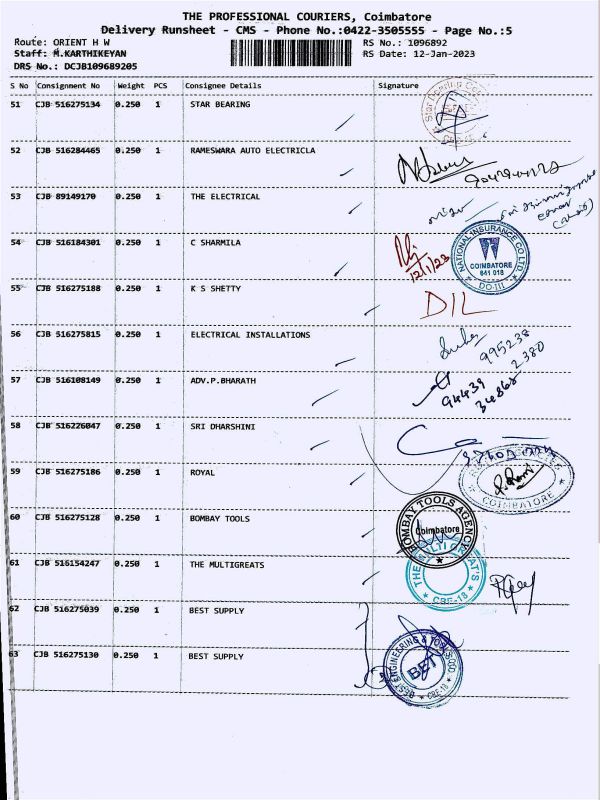 THE PROFESSIONAL COURIERS, Coimbatore
Delivery Runsheet - CMS - Phone No.:0422-3505555 - Page No.:5
Route: ORIENT H W
RS No.: 1096892
Staff: M.KARTHIKEYAN
RS Date: 12-Jan-2023
DRS No.: DCJB109689205
S No Consignment No Weight PCS Consignee Details Signature
51 CJB 516275134 0.250 1 STAR BEARING
52 CJB 516284465 0.250 1 RAMESWARA AUTO ELECTRICLA
53 CJB 89149170 0.250 1 THE ELECTRICAL
54 CJB 516184301 0.250 1 C SHARMILA
12/1/23
NATIONAL INSURANCE CO LTD
COIMBATORE
641 018
DO-III
55 CJB 516275188 0.250 1 K S SHETTY
DIL
56 CJB 516275815 0.250 1 ELECTRICAL INSTALLATIONS
995238
2380
57 CJB 516108149 0.250 1 ADV.P.BHARATH
94439
34868
58 CJB 516226047 0.250 1 SRI DHARSHINI
59 CJB 516275186 0.250 1 ROYAL
COIMBATORE
60 CJB 516275128 0.250 1 BOMBAY TOOLS
BOMBAY TOOLS AGENCY
Coimbatore
61 CJB 516154247 0.250 1 THE MULTIGREATS
CBE-18
62 CJB 516275039 0.250 1 BEST SUPPLY
63 CJB 516275130 0.250 1 BEST SUPPLY
BEST ENGINEERING & TOOLS CO
BET
CBE-18